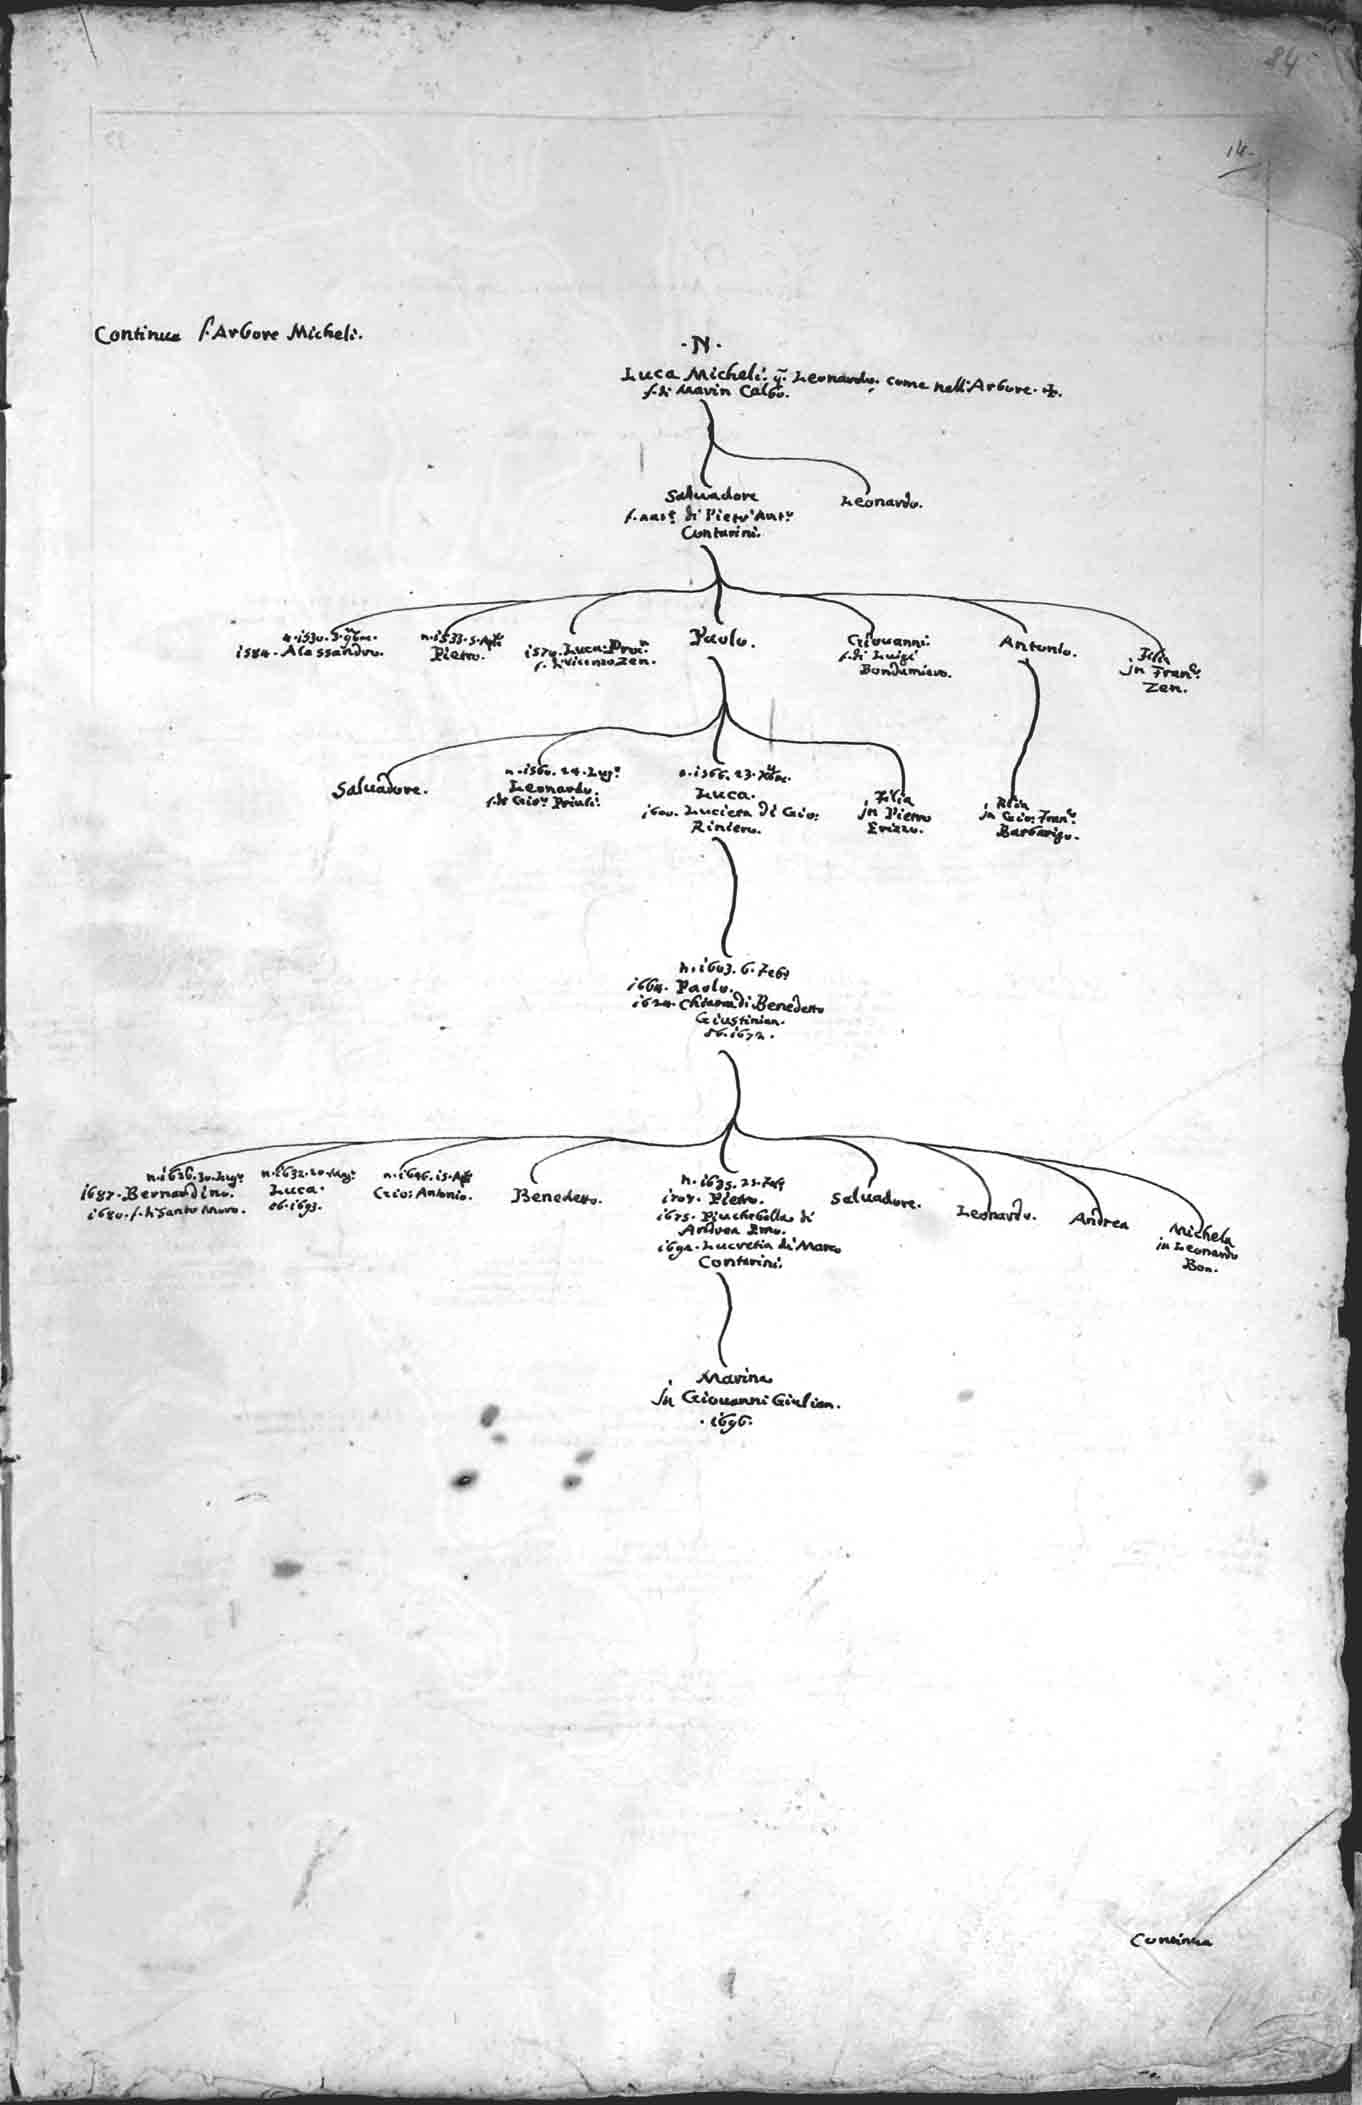 84
14.
Continua l'Arbore Micheli.
·N·
Luca Micheli. q. Leonardo. come nell'Arbore. ✠.
f. di Marin Calbo.
Salvadore
Leonardo.
f. nat.ᵉ di Pietr'Ant.º
Contarini.
n. i530. 5. 9bre.
i584. Alessandro.
n. i533. 5. Aple
Pietro.
i570. Luca. Proc.ʳ
f. di Vicenzo Zen.
Paolo.
Giovanni.
f. di Luigi
Bondumiero.
Antonio.
Filia
in Fran.º
Zen.
Salvadore.
n. i560. 24. Lugº
Leonardo.
f. de Gio: Priuli.
n. i566. 23. Xbre.
Luca.
i600. Luciera di Gio:
Riniero.
Filia
in Pietro
Erizzo.
Filia
in Gio: Fran.º
Barbarigo.
n. i603. 6. Feb.
i664. Paolo.
i624. Chiara di Benedetto
Giustinian.
ob. i672.
n. i626. 30. Lugº
i687. Bernardino.
i680. f. di Santo Moro.
n. i632. 20. Magº
Luca.
ob. i693.
n. i646. i5. Aple
Gio: Antonio.
Benedetto.
n. i635. 23. Feb.
i707. Pietro.
i675. Piuchebella di
Andrea Emo.
i692. Lucretia di Marco
Contarini.
Salvadore.
Leonardo.
Andrea
Michela
in Leonardo
Bon.
Marina
in Giovanni Giulian.
. i696.
Continua